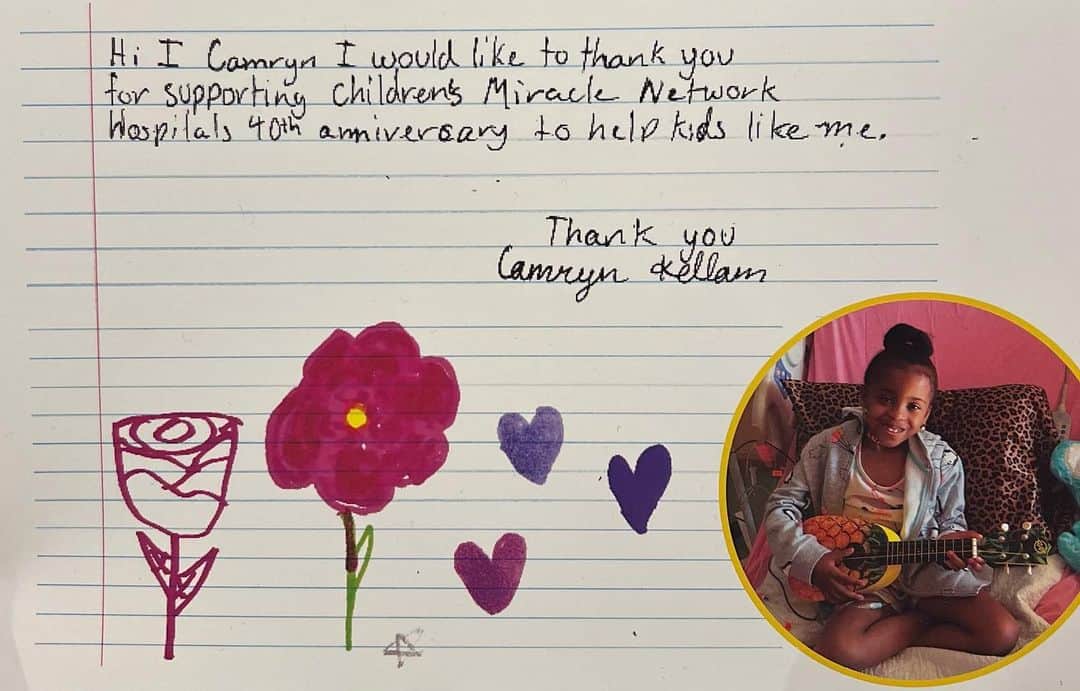 Hi I Camryn I would like to thank you
for supporting Children's Miracle Network
Hospitals 40th anniversary to help kids like me.
Thank you
Camryn Kellam